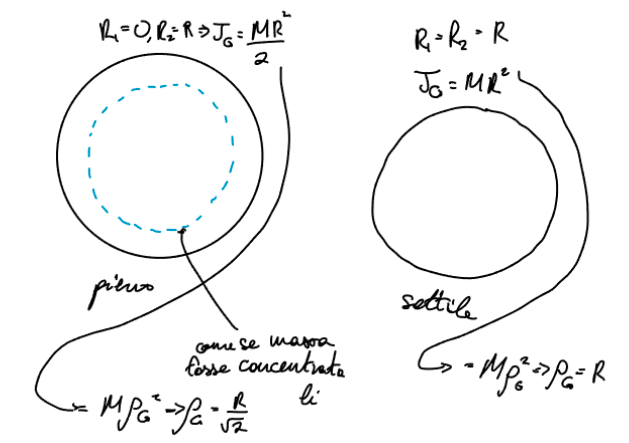 R₁=0, R₂=R ⇒ J_G = MR²/2
pieno
come se massa
fosse concentrata
lì
= Mρ_G² → ρ_G = R/√2
R₁ = R₂ = R
J_G = MR²
sottile
= Mρ_G² → ρ_G = R